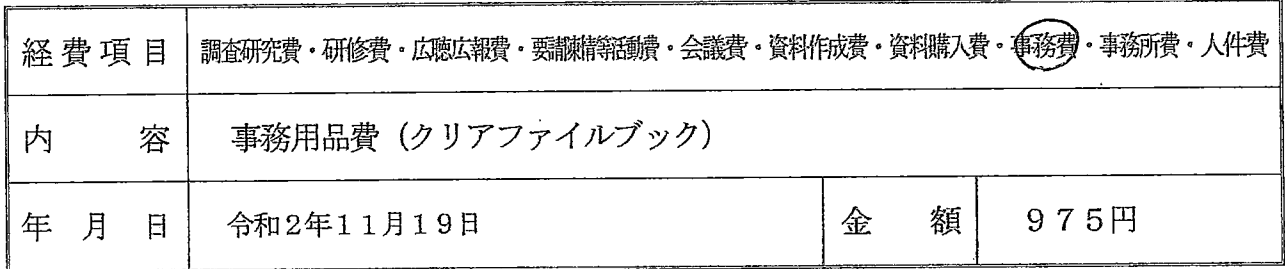 経費項目 調査研究費・研修費・広聴広報費・要請陳情等活動費・会議費・資料作成費・資料購入費・事務費・事務所費・人件費
内容 事務用品費（クリアファイルブック）
年月日 令和2年11月19日 金額 975円